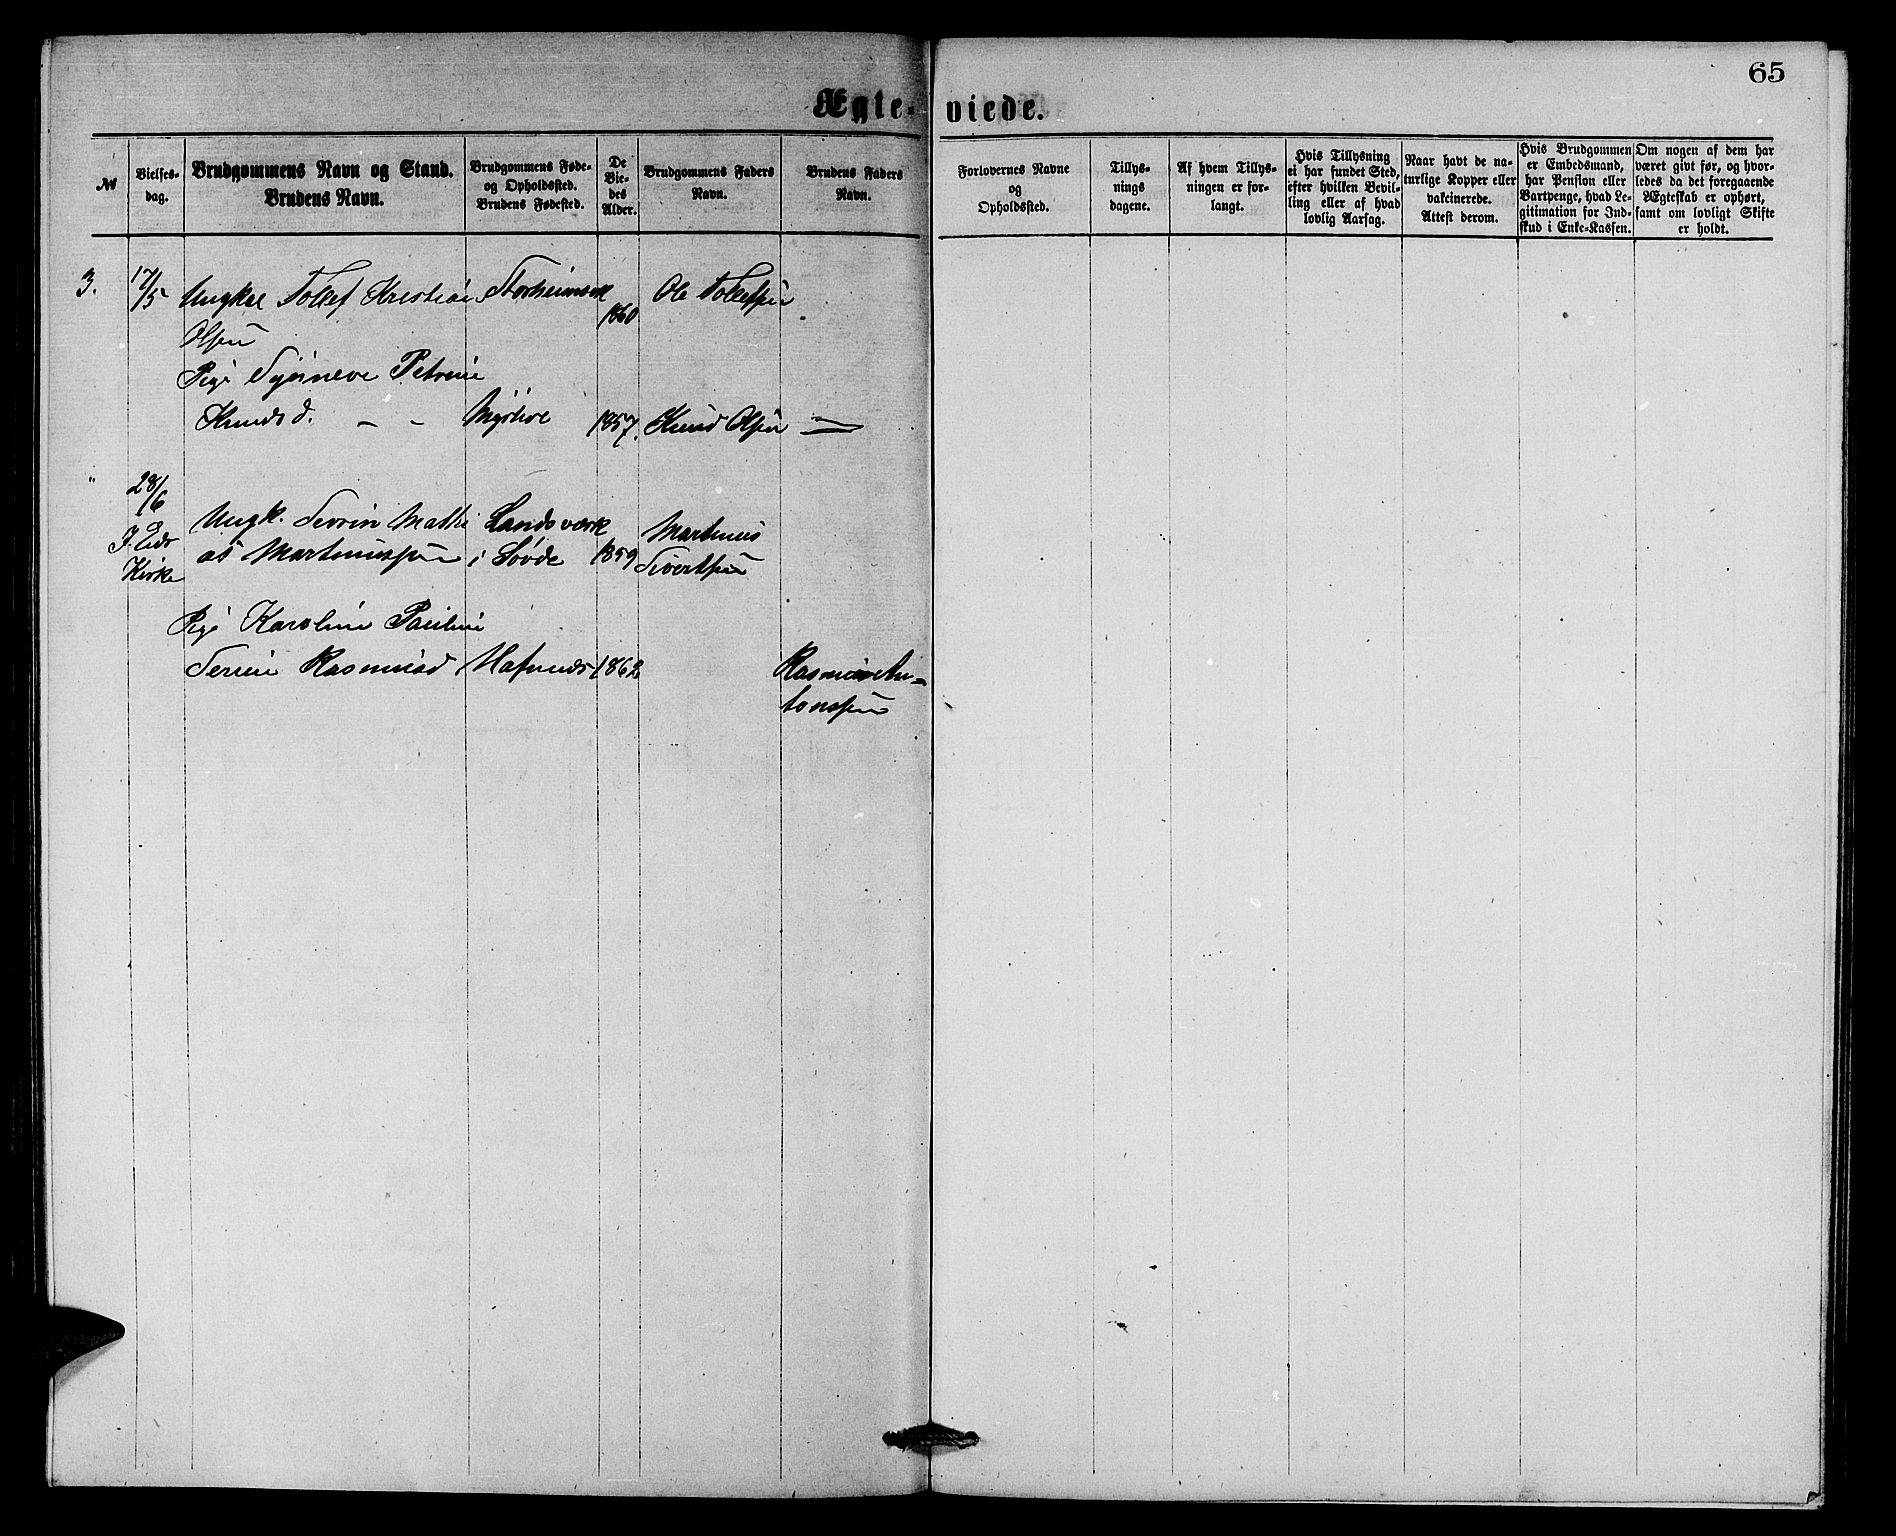 65
Ægte- viede.
№
Vielses-
dag.
Brudgommens Navn og Stand.
Brudens Navn.
Brudgommens Føde-
og Opholdssted.
Brudens Fødested.
De
Vie-
des
Alder.
Brudgommens Faders
Navn.
Brudens Faders
Navn.
Forlovernes Navne
og
Opholdssted.
Tillys-
nings
dagene.
Af hvem Tillys-
ningen er for-
langt.
Hvis Tillysning
ei har fundet Sted,
efter hvilken Bevil-
ling eller af hvad
lovlig Aarsag.
Naar havt de na-
turlige Kopper eller
vakcinerede.
Attest derom.
Hvis Brudgommen
er Embedsmand,
har Pension eller
Vartpenge, hvad Le-
gitimation for Ind-
skud i Enke-Kassen.
Om nogen af dem har
været givt før, og hvor-
ledes da det foregaaende
Ægteskab er ophørt,
samt om lovligt Skifte
er holdt.
3. 17/5 Tollef Kristian 1860 Ole Tollefsen
Olsen
Pige Petrine
Knudsd. - - 1857. Knud Olsen —
" 28/6
Ungk. Sevrin Mathi Landsværk Martinus
as Martinussen i Søvde 1859 Sivertsen
Kirke
Pige Karoline Pauline
Serine Rasmusd 1862 Rasmus An-
tonsen